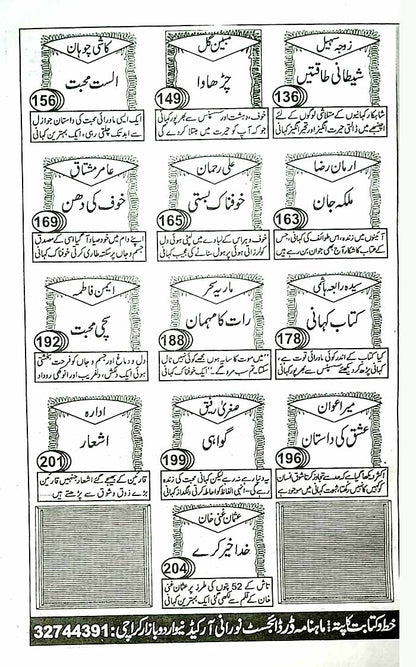 زوجہ سہیل
شیطانی طاقتیں
136
شاہکار کہانیوں کے متلاشی لوگوں کے لئے
اچنبھے میں ڈالتی حیرت انگیز اور تحیر انگیز کہانی
سبین گل
چڑھاوا
149
خوف، دہشت اور سسپنس سے بھرپور کہانی
جو کہ آپ کو حیرت میں مبتلا کر دے گی
کاشی چوہان
الست محبت
156
ایک ایسی ماورائی محبت کی داستان جو ازل
سے ابد تک چلتی رہی، ایک بہترین کہانی
ارمان رضا
ملکہ جان
163
آئینوں میں زندہ، اس طوائف کی کہانی، جس
کے عتاب کا شکار آج بھی جوان بن رہے ہیں
علی رحمان
خوفناک بستی
165
خوف و ہراس کے لبادے میں لپٹی ہوئی دل
کو لرزاتی ہوئی پر ہول سناٹے کی عجیب کہانی
عامر مشتاق
خوف کی دھن
169
اپنے دام میں خود صیاد آ گیا اسی کے مصداق
جسم و جاں پر سکتہ طاری کرتی خوفناک کہانی
سیدہ رابعہ ہاشمی
کتاب کہانی
178
کیا کتاب کے اندر کوئی ماورائی قوت ہے،
کہانی پڑھ کر دیکھئے سسپنس سے بھرپور کہانی
ماریہ سحر
رات کا مہمان
188
"میں موت کا سایہ ہوں مجھے کوئی نہیں ٹال
سکتا، تم سب مرو گے۔۔۔" ایک خوفناک کہانی
ایمن فاطمہ
سچی محبت
192
دل و دماغ اور جسم و جاں کو فرحت بخشتی
ہوئی ایک دلکش، دلفریب اور انوکھی روداد
میرا عوان
عشق کی داستان
196
اکثر دیکھا گیا ہے کہ حد سے تجاوز کرتا عشق انسان
کو کہیں کا نہیں رکھتا، ثبوت کہانی میں موجود ہے
صغریٰ رفیق
گواہی
199
یہ دنیا رہے نہ رہے لیکن کہانی محبت کی زندہ
رہے گی۔ انہی الفاظ کو احاطہ کرتی دلگداز کہانی
ادارہ
اشعار
201
قارئین کے بھیجے گئے اشعار جنہیں قارئین
بڑے ذوق و شوق سے پڑھتے ہیں
عثمان غنی خان
خدا خیر کرے
204
تاش کے 52 پتوں کی طرز پر عثمان غنی
خان کے قلم سے لکھی گئی ایک بہترین کہانی
خط و کتابت کا پتہ: ماہنامہ ڈر ڈائجسٹ نورانی آرکیڈ نیو اردو بازار کراچی: 32744391